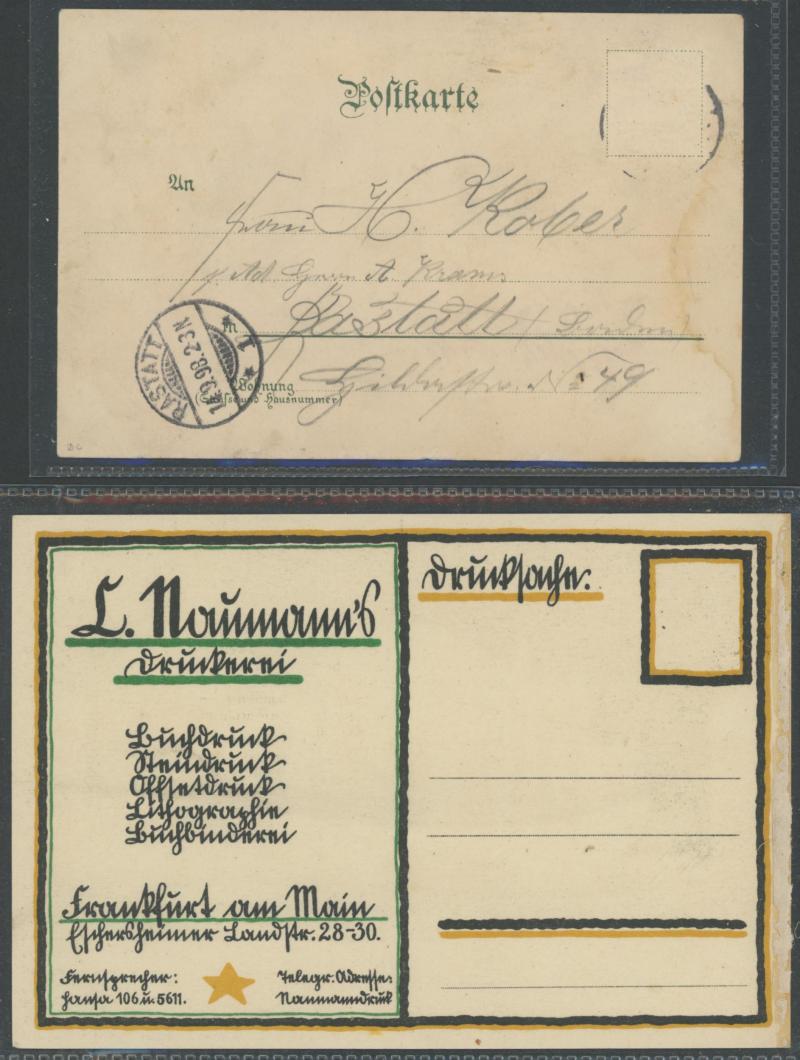 Postkarte
An
Frau H. Kober
p. Ad Herrn A. Krams
Rastatt / Baden
In
Wohnung
(Strasse und Hausnummer)
No 49
RASTATT
14.9.98.2-3N
1
L. Naumann's
Druckerei
Buchdruck
Steindruck
Offsetdruck
Lithographie
Buchbinderei
Frankfurt am Main
Eschersheimer Landstr. 28-30.
Fernsprecher:
Hansa 106 u. 5611.
Telegr. Adresse:
Naumanndruck
Drucksache: